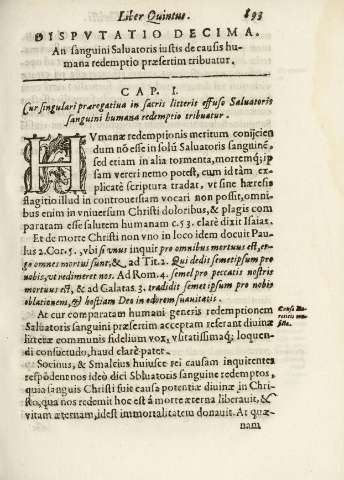 Liber Quintus. 893
DISPVTATIO DECIMA.
An sanguini Saluatoris iustis de causis hu-
mana redemptio præsertim tribuatur.
CAP. I.
Cur singulari prærogatiua in sacris litteris effuso Saluatoris
sanguini humana redemptio tribuatur.
HVmanæ redemptionis meritum conijcien
dum nō esse in solū Saluatoris sanguinē,
sed etiam in alia tormenta, mortemq; ip
sam vereri nemo potest, cum id tàm ex-
plicatè scriptura tradat, vt sine hæresis
flagitio illud in controuersiam vocari non possit, omni-
bus enim in vniuersum Christi doloribus, & plagis com
paratam esse salutem humanam c. 53. clarè dixit Isaias.
Et de morte Christi non vno in loco idem docuit Pau-
lus 2. Cor. 5. vbi si vnus inquit pro omnibus mortuus est, er-
go omnes mortui sunt, &, ad Tit. 2. Qui dedit semetipsum pro
nobis, vt redimeret nos. Ad Rom. 4. semel pro peccatis nostris
mortuus est, & ad Galatas. 3. tradidit semetipsum pro nobis
oblationem, & hostiam Deo in odorem suauitatis.
At cur comparatam humani generis redemptionem
Saluatoris sanguini præsertim acceptam referant diuinæ
litteræ communis fidelium vox, vsitatissimaq; loquen-
di consuetudo, haud clarè patet.
Socinus, & Smalcius huiusce rei causam inquirentes
respōdent nos ideò dici Sbluatoris sanguine redemptos,
quia sanguis Christi fuit causa potentiæ diuinæ in Chri-
sto, qua nos redemit hoc est à morte æterna liberauit, &
vitam æternam, idest immortalitatem donauit. At quæ-
nam